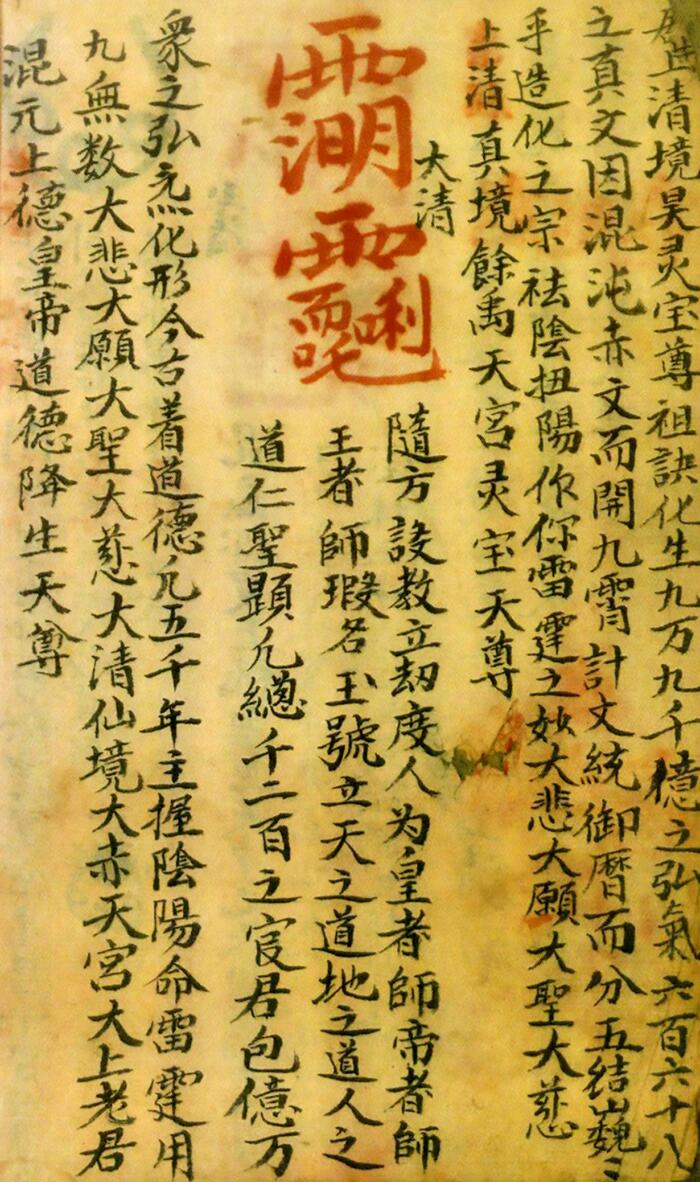 清境昊灵宝尊祖訣化生九万九千億之弘氣六百六十八
之真文因混沌赤文而開九霄計文統御曆而分五結巍〻
乎造化之宗祛陰扭陽作你雷霆之妙大悲大願大聖大慈
上清真境餘禹天宮灵宝天尊
大清
隨方設教立劫度人为皇者師帝者師
王者師瑕名玉號立天之道地之道人之
道仁聖顕凢總千二百之宸君包億万
衆之弘炁化形今古着道德凢五千年主握陰陽命雷霆用
九無数大悲大願大聖大慈大清仙境大赤天宮大上老君
混元上德皇帝道德降生天尊